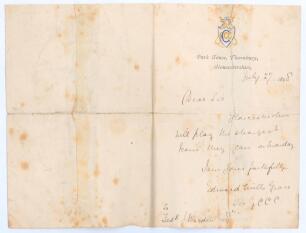 Park House, Thornbury,
Gloucestershire.
July 27. 18
Dear Sir
Gloucestershire
will play the strongest
team they can on Monday
I am yours faithfully
Edward Mills Grace
Sec G.C.C.C
To